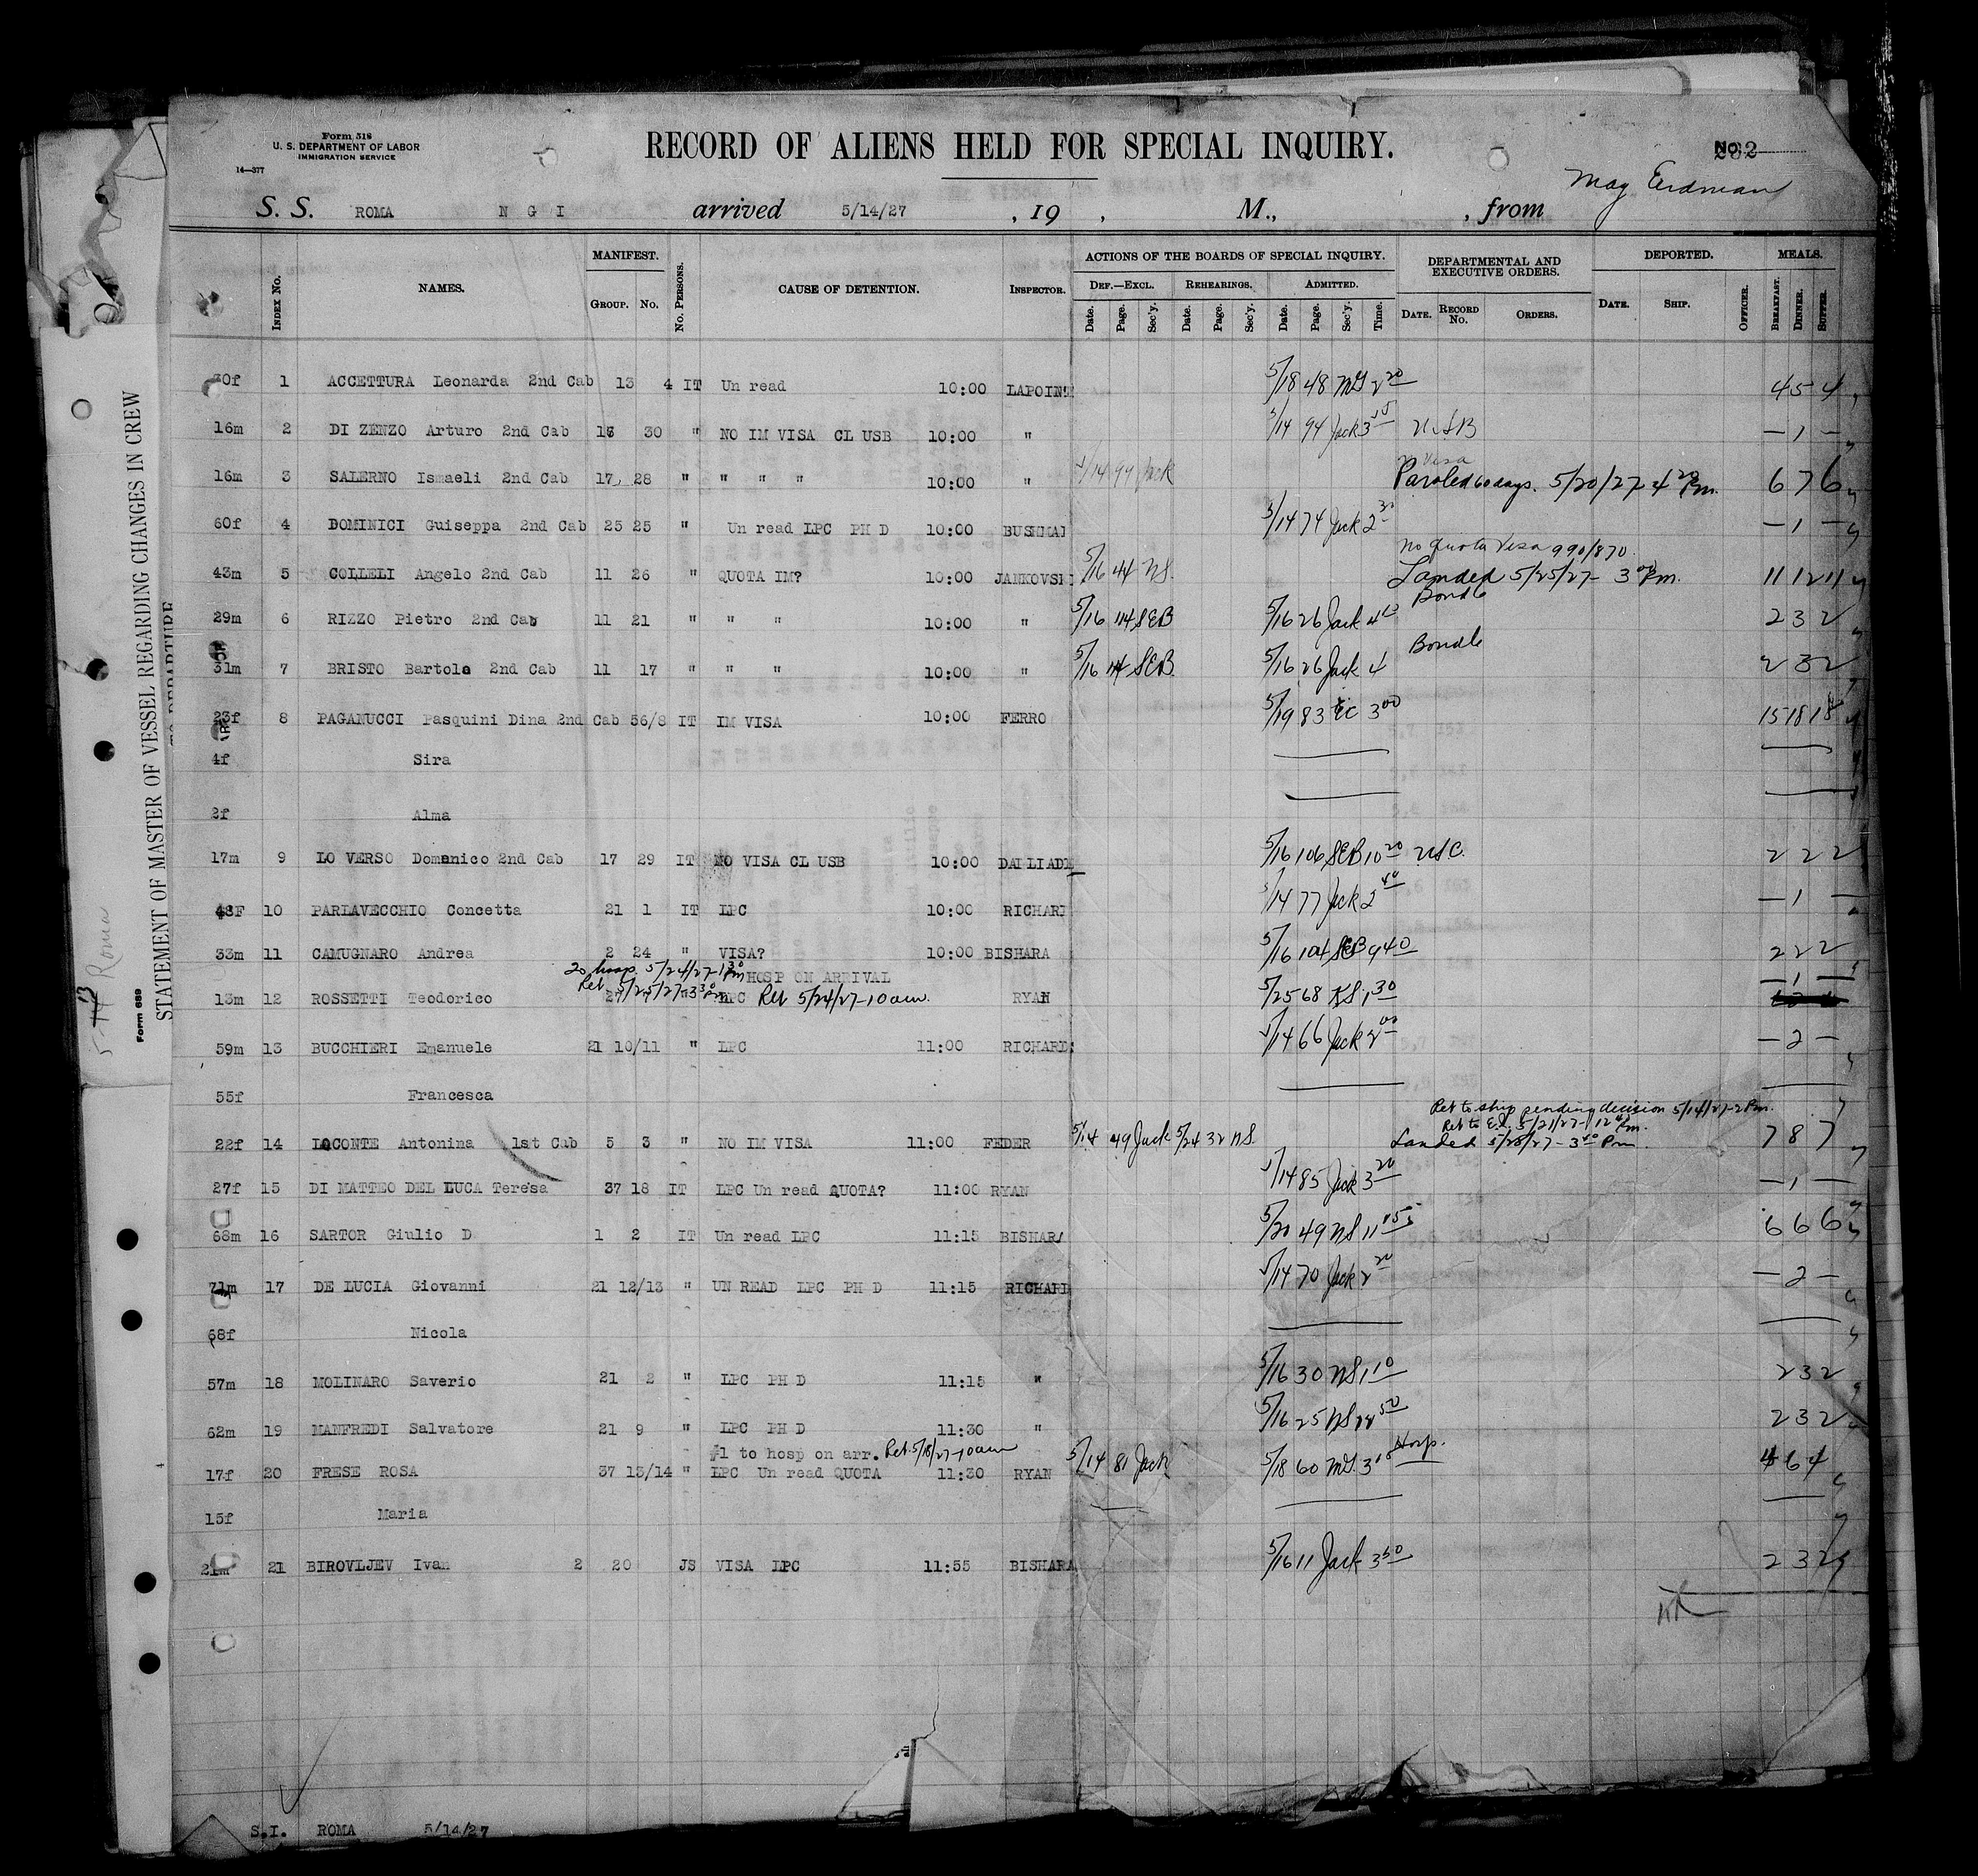 Form 518
U. S. DEPARTMENT OF LABOR
IMMIGRATION SERVICE
14—377
RECORD OF ALIENS HELD FOR SPECIAL INQUIRY.
No. 2
May Erdman
S. S. ROMA N G I arrived 5/14/27 , 19 , M., , from
Index No. NAMES. MANIFEST. Group. No. No. Persons. CAUSE OF DETENTION. Inspector. ACTIONS OF THE BOARDS OF SPECIAL INQUIRY. DEPARTMENTAL AND EXECUTIVE ORDERS. DEPORTED. MEALS.
Def.—Excl. Rehearings. Admitted.
Date. Page. Sec'y. Date. Page. Sec'y. Date. Page. Sec'y. Time. Date. Record No. Orders. Date. Ship. Officer. Breakfast. Dinner. Supper.
30f 1 ACCETTURA Leonarda 2nd Cab 13 4 IT Un read 10:00 LAPOINT 5/18 48 MG 2 20 4 5 4
16m 2 DI ZENZO Arturo 2nd Cab 30 " NO IM VISA CL USB 10:00 " 5/14 94 Jack 3 USB — 1 —
no Visa
16m 3 SALERNO Ismaeli 2nd Cab 17 28 " " " " 10:00 " 5/14 94 Jack Paroled 60 days. 5/20/27 4 20 Pm. 6 7 6
60f 4 DOMINICI Guiseppa 2nd Cab 25 25 " Un read LPC PH D 10:00 BUSHMAN 5/14 74 Jack 2 30 — 1 —
no Quota Visa 990/870
43m 5 COLLELI Angelo 2nd Cab 11 26 " QUOTA IM? 10:00 JANKOVSKI 5/16 44 NS. Landed 5/25/27 - 3 00 Pm. 11 12 11
29m 6 RIZZO Pietro 2nd Cab 11 21 " " " 10:00 " 5/16 114 SEB 5/16 26 Jack 4 Bond 2 3 2
31m 7 BRISTO Bartolo 2nd Cab 11 17 " " " 10:00 " 5/16 114 SEB. 5/16 26 Jack 4 Bond 2 3 2
23f 8 PAGANUCCI Pasquini Dina 2nd Cab 56/8 IT IM VISA 10:00 FERRO 5/19 83 EC 3 00 15 18 18
4f Sira
2f Alma
17m 9 LO VERSO Domenico 2nd Cab 17 29 IT NO VISA CL USB 10:00 5/16 106 SEB 10 20 USC. 2 2 2
48F 10 PARLAVECCHIO Concetta 21 1 IT LPC 10:00 RICHARD 5/14 77 Jack 2 40 — 1 —
33m 11 CAMUGNARO Andrea 2 24 " VISA? 10:00 BISHARA 5/16 104 SEB 9 40 2 2 2
To hosp. 5/24/27-1 30 Pm HOSP ON ARRIVAL — 1 —
Ret 5/25/27-3 30 Pm
13m 12 ROSSETTI Teodorico 27 LPC Ret 5/24/27-10 am. RYAN 5/25 68 KS 1 30
59m 13 BUCCHIERI Emanuele 21 10/11 " LPC 11:00 RICHARDS 5/14 66 Jack 2 00 — 2 —
55f Francesca
Ret to ship pending decision 5/14/27-2 Pm.
Ret to E.I. 5/21/27-12 Pm.
22f 14 LOCONTE Antonina 1st Cab 5 3 " NO IM VISA 11:00 FEDER 5/14 49 Jack 5/24 32 NS. Landed 5/28/27-3 40 Pm 7 8 7
27f 15 DI MATTEO DEL LUCA Teresa 37 18 IT LPC Un read QUOTA? 11:00 RYAN 5/14 85 Jack 3 20 — 1 —
68m 16 SARTOR Giulio D 1 2 IT Un read LPC 11:15 BISHARA 5/20 49 NS 11 6 6 6
71m 17 DE LUCIA Giovanni 21 12/13 " UN READ LPC PH D 11:15 RICHARD 5/14 70 Jack 2 20 — 2 —
68f Nicola
57m 18 MOLINARO Saverio 21 2 " LPC PH D 11:15 " 5/16 30 NS 1 10 2 3 2
62m 19 MANFREDI Salvatore 21 9 " LPC PH D 11:30 " 5/16 25 NS 12 50 2 3 2
#1 to hosp on arr. Ret 5/18/27-10 am Hosp.
17f 20 FRESE ROSA 37 13/14 " LPC Un read QUOTA 11:30 RYAN 5/14 81 Jack 5/18 60 MG. 3 4 6 4
15f Maria
21m 21 BIROVLJEV Ivan 2 20 JS VISA LPC 11:55 BISHARA 5/16 11 Jack 3 50 2 3 2
S.I. ROMA 5/14/27
Form 689
STATEMENT OF MASTER OF VESSEL REGARDING CHANGES IN CREW
Roma